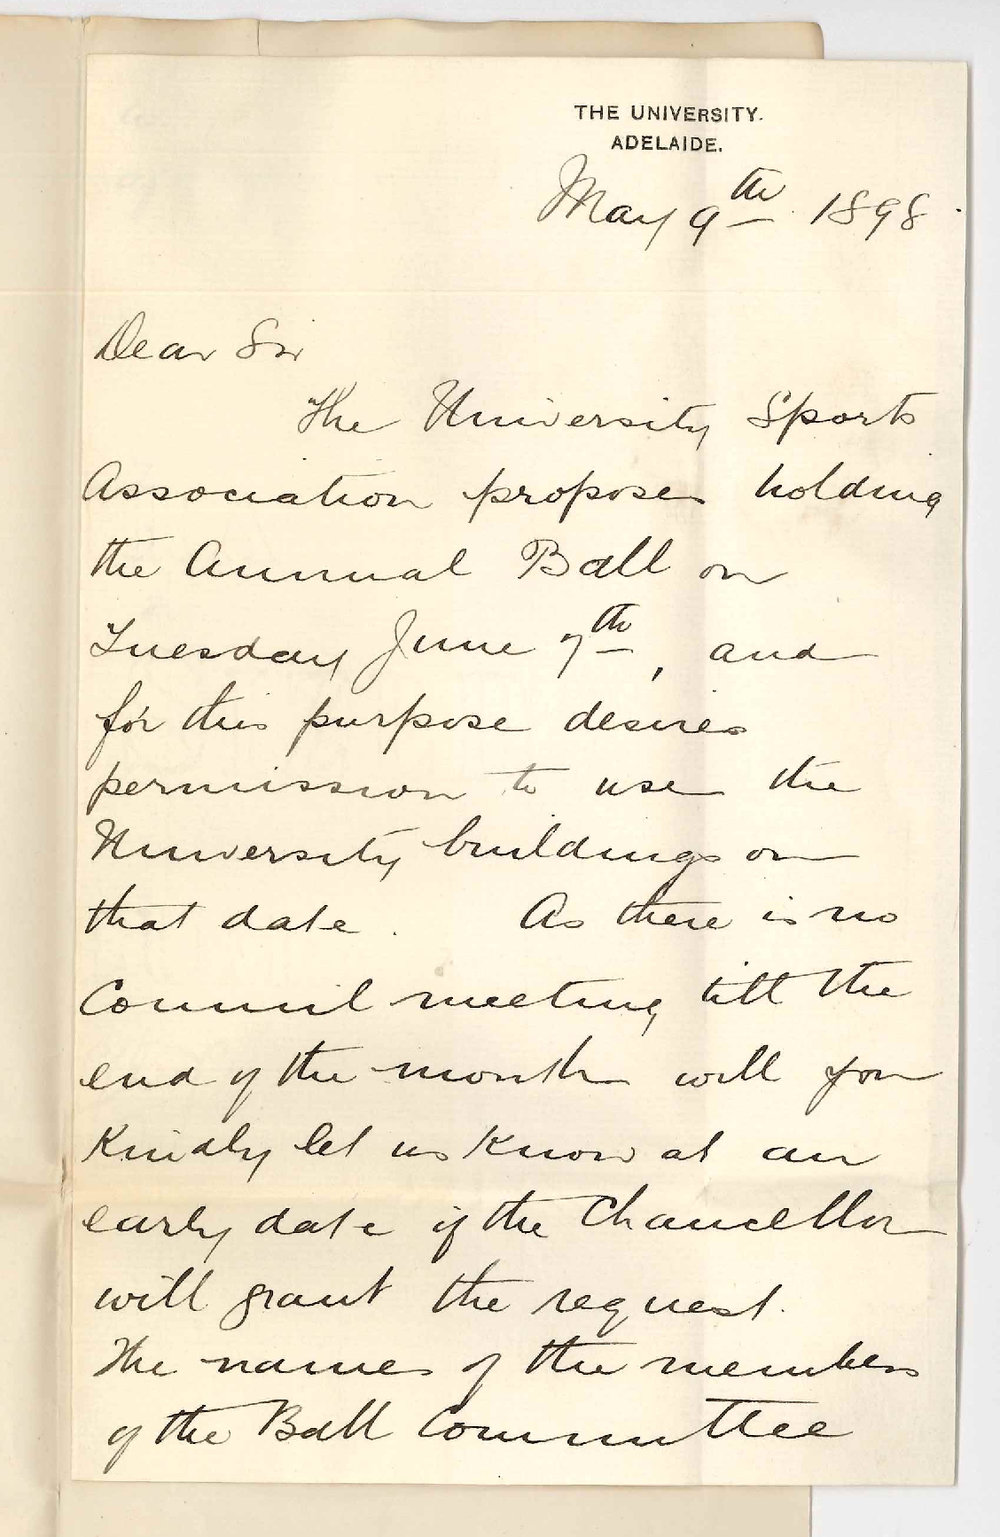 THE UNIVERSITY.
ADELAIDE.
May 9th 1898.
Dear Sir
The University Sports
Association proposes holding
the Annual Ball on
Tuesday June 7th, and
for this purpose desires
permission to use the
University buildings on
that date. As there is no
Council meeting till the
end of the month will you
kindly let us know at an
early date if the Chancellor
will grant the request.
The names of the members
of the Ball Committee